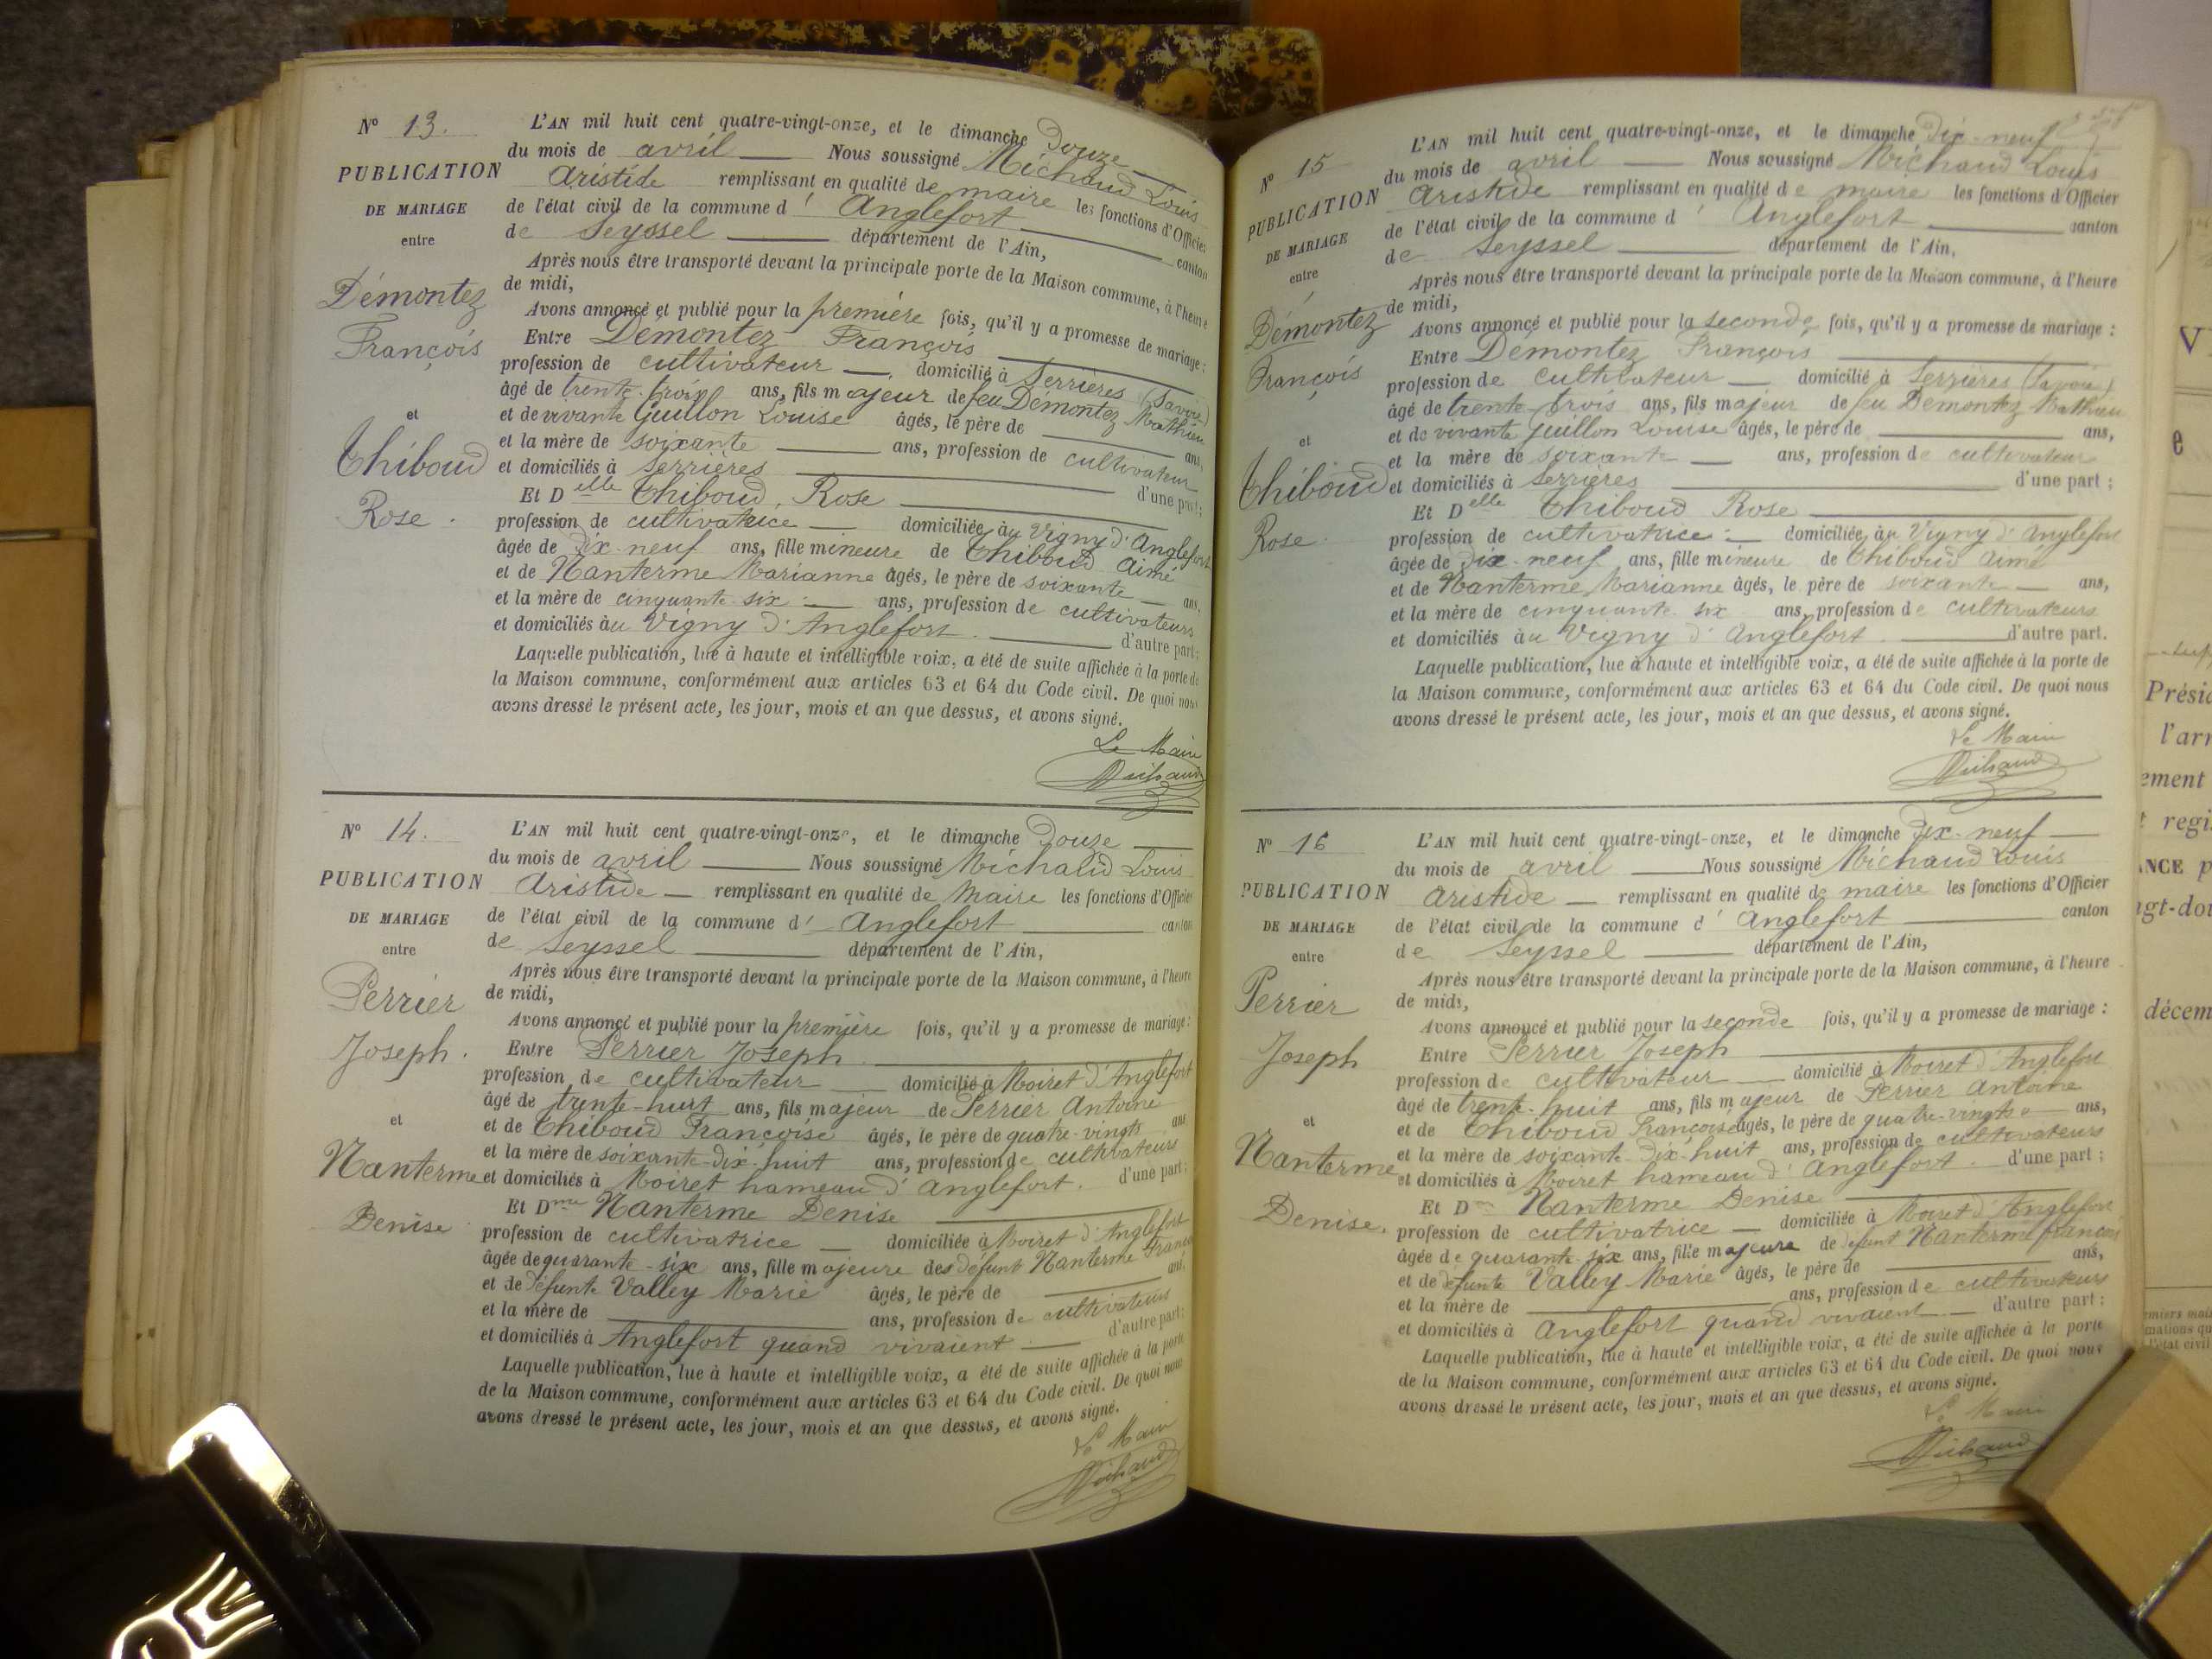 N° 13.
PUBLICATION
DE MARIAGE
entre
Démontez
François
et
Thiboud
Rose.
L'AN mil huit cent quatre-vingt-onze, et le dimanche Douze
du mois de avril Nous soussigné Michaud Louis
Aristide remplissant en qualité de maire les fonctions d'Officier
de l'état civil de la commune d' Anglefort canton
de Seyssel département de l'Ain,
Après nous être transporté devant la principale porte de la Maison commune, à l'heure
de midi,
Avons annoncé et publié pour la première fois, qu'il y a promesse de mariage:
Entre Démontez François
profession de cultivateur domicilié à Serrières (Savoie)
âgé de trente-trois ans, fils majeur de feu Démontez Mathieu
et de vivante Guillon Louise âgés, le père de ans,
et la mère de soixante ans, profession de cultivateur
et domiciliés à Serrières d'une part;
Et Delle Thiboud Rose
profession de cultivatrice domiciliée au Vigny d'Anglefort
âgée de dix-neuf ans, fille mineure de Thiboud Aimé
et de Nanterme Marianne âgés, le père de soixante ans,
et la mère de cinquante-six ans, profession de cultivateurs
et domiciliés au Vigny d'Anglefort. d'autre part;
Laquelle publication, lue à haute et intelligible voix, a été de suite affichée à la porte de
la Maison commune, conformément aux articles 63 et 64 du Code civil. De quoi nous
avons dressé le présent acte, les jour, mois et an que dessus, et avons signé.
Le Maire
Michaud
N° 14.
PUBLICATION
DE MARIAGE
entre
Perrier
Joseph.
et
Nanterme
Denise
L'AN mil huit cent quatre-vingt-onze, et le dimanche Douze
du mois de avril Nous soussigné Michaud Louis
Aristide remplissant en qualité de Maire les fonctions d'Officier
de l'état civil de la commune d' Anglefort canton
de Seyssel département de l'Ain,
Après nous être transporté devant la principale porte de la Maison commune, à l'heure
de midi,
Avons annoncé et publié pour la première fois, qu'il y a promesse de mariage:
Entre Perrier Joseph
profession de cultivateur domicilié à Moiret d'Anglefort
âgé de trente-huit ans, fils majeur de Perrier Antoine
et de Thiboud Françoise âgés, le père de quatre-vingts ans
et la mère de soixante-dix-huit ans, profession de cultivateurs
et domiciliés à Moiret hameau d'Anglefort. d'une part;
Et Dme Nanterme Denise
profession de cultivatrice domiciliée à Moiret d'Anglefort
âgée de quarante-six ans, fille majeure des défunt Nanterme
et de défunte Valley Marie âgés, le père de ans,
et la mère de ans, profession de cultivateurs
et domiciliés à Anglefort quand vivaient d'autre part;
Laquelle publication, lue à haute et intelligible voix, a été de suite affichée à la porte
de la Maison commune, conformément aux articles 63 et 64 du Code civil. De quoi nous
avons dressé le présent acte, les jour, mois et an que dessus, et avons signé.
Le Maire
Michaud
N° 15
PUBLICATION
DE MARIAGE
entre
Démontez
François
et
Thiboud
Rose.
L'AN mil huit cent quatre-vingt-onze, et le dimanche dix-neuf
du mois de avril Nous soussigné Michaud Louis
Aristide remplissant en qualité de maire les fonctions d'Officier
de l'état civil de la commune d' Anglefort canton
de Seyssel département de l'Ain,
Après nous être transporté devant la principale porte de la Maison commune, à l'heure
de midi,
Avons annoncé et publié pour la seconde fois, qu'il y a promesse de mariage:
Entre Démontez François
profession de cultivateur domicilié à Serrières (Savoie)
âgé de trente-trois ans, fils majeur de feu Démontez Mathieu
et de vivante Guillon Louise âgés, le père de ans,
et la mère de soixante ans, profession de cultivateur
et domiciliés à Serrières d'une part;
Et Delle Thiboud Rose
profession de cultivatrice domiciliée au Vigny d'Anglefort
âgée de dix-neuf ans, fille mineure de Thiboud Aimé
et de Nanterme Marianne âgés, le père de soixante ans,
et la mère de cinquante-six ans, profession de cultivateurs
et domiciliés au Vigny d'Anglefort. d'autre part.
Laquelle publication, lue à haute et intelligible voix, a été de suite affichée à la porte de
la Maison commune, conformément aux articles 63 et 64 du Code civil. De quoi nous
avons dressé le présent acte, les jour, mois et an que dessus, et avons signé.
Le Maire
Michaud
N° 16
PUBLICATION
DE MARIAGE
entre
Perrier
Joseph
et
Nanterme
Denise.
L'AN mil huit cent quatre-vingt-onze, et le dimanche dix-neuf
du mois de avril Nous soussigné Michaud Louis
Aristide remplissant en qualité de maire les fonctions d'Officier
de l'état civil de la commune d' Anglefort canton
de Seyssel département de l'Ain,
Après nous être transporté devant la principale porte de la Maison commune, à l'heure
de midi,
Avons annoncé et publié pour la seconde fois, qu'il y a promesse de mariage:
Entre Perrier Joseph
profession de cultivateur domicilié à Moiret d'Anglefort
âgé de trente-huit ans, fils majeur de Perrier Antoine
et de Thiboud Françoise âgés, le père de quatre-vingts ans,
et la mère de soixante-dix-huit ans, profession de cultivateurs
et domiciliés à Moiret hameau d'Anglefort. d'une part;
Et Dme Nanterme Denise
profession de cultivatrice domiciliée à Moiret d'Anglefort
âgée de quarante-six ans, fille majeure de défunt Nanterme françois
et de défunte Valley Marie âgés, le père de ans,
et la mère de ans, profession de cultivateurs
et domiciliés à Anglefort quand vivaient. d'autre part;
Laquelle publication, lue à haute et intelligible voix, a été de suite affichée à la porte
de la Maison commune, conformément aux articles 63 et 64 du Code civil. De quoi nous
avons dressé le présent acte, les jour, mois et an que dessus, et avons signé.
Le Maire
Michaud